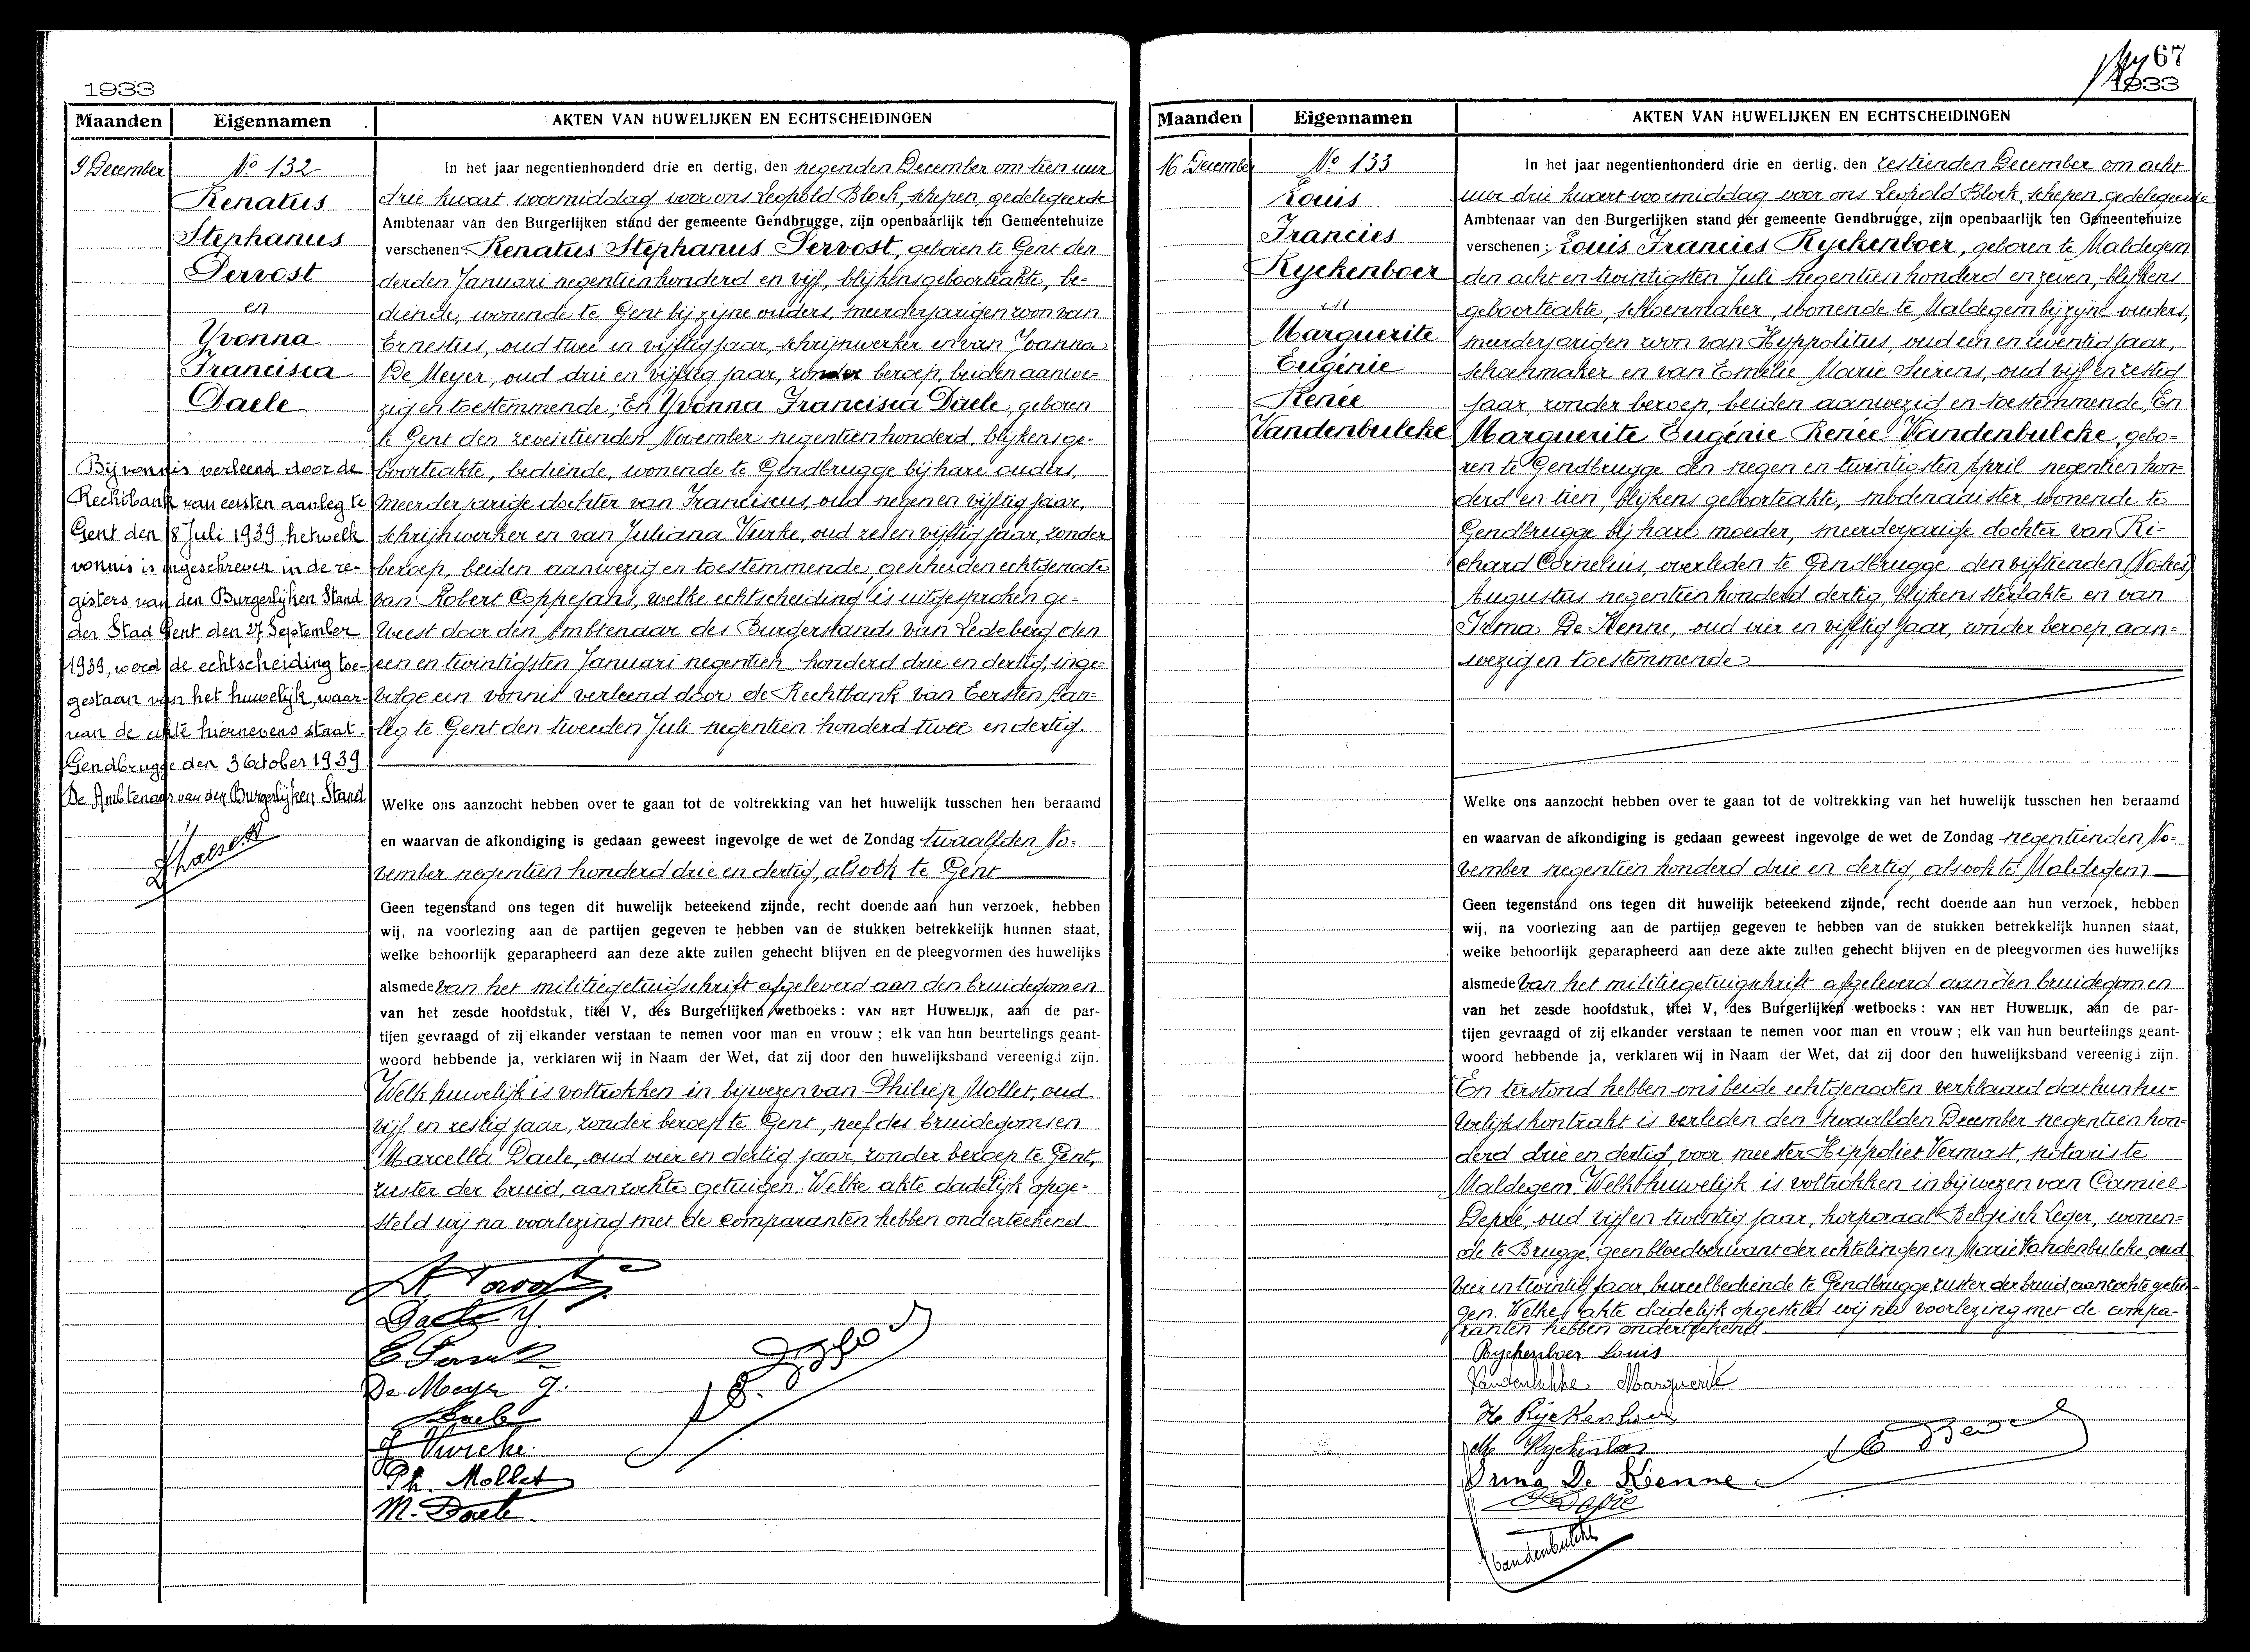 1933
Maanden
Eigennamen
AKTEN VAN HUWELIJKEN EN ECHTSCHEIDINGEN
9 December
No 132
Renatus
Stephanus
Pervost
en
Yvonna
Francisca
Daele
Bij vonnis verleend door de
Rechtbank van eersten aanleg te
Gent den 8 Juli 1939, hetwelk
vonnis is ingeschreven in de re-
gisters van den Burgerlijken Stand
der Stad Gent den 27 September
1939, werd de echtscheiding toe-
gestaan van het huwelijk, waar-
van de akte hiernevens staat.
Gendbrugge den 3 October 1939
De Ambtenaar van den Burgerlijken Stand
In het jaar negentienhonderd drie en dertig, den negenden December om tien uur
drie kwart voormiddag voor ons Leopold Block, schepen, gedelegeerde
Ambtenaar van den Burgerlijken stand der gemeente Gendbrugge, zijn openbaarlijk ten Gemeentehuize
verschenen: Renatus Stephanus Pervost, geboren te Gent den
derden Januari negentienhonderd en vijf, blijkens geboorteakte, be-
diende, wonende te Gent bij zijne ouders, meerderjarigen zoon van
Ernestus, oud twee en vijftig jaar, schrijnwerker en van Joanna
De Meyer, oud drie en vijftig jaar, zonder beroep, beiden aanwe-
zig en toestemmende; En Yvonna Francisca Daele, geboren
te Gent den zeventienden November negentienhonderd, blijkens ge-
boorteakte, bediende, wonende te Gendbrugge bij hare ouders,
meerderjarige dochter van Franciscus, oud negen en vijftig jaar,
schrijnwerker en van Juliana Vurke, oud zes en vijftig jaar, zonder
beroep, beiden aanwezig en toestemmende, gescheiden echtgenoote
van Robert Coppejans, welke echtscheiding is uitgesproken ge-
weest door den Ambtenaar des Burgerstands van Ledeberg den
een en twintigsten Januari negentien honderd drie en dertig, inge-
volge een vonnis verleend door de Rechtbank van Eersten Aan-
leg te Gent den tweeden Juli negentien honderd twee en dertig.
Welke ons aanzocht hebben over te gaan tot de voltrekking van het huwelijk tusschen hen beraamd
en waarvan de afkondiging is gedaan geweest ingevolge de wet de Zondag twaalfden No-
vember negentien honderd drie en dertig, alsook te Gent
Geen tegenstand ons tegen dit huwelijk beteekend zijnde, recht doende aan hun verzoek, hebben
wij, na voorlezing aan de partijen gegeven te hebben van de stukken betrekkelijk hunnen staat,
welke behoorlijk geparapheerd aan deze akte zullen gehecht blijven en de pleegvormen des huwelijks
alsmede van het militiegetuigschrift afgeleverd aan den bruidegom en
van het zesde hoofdstuk, titel V, des Burgerlijken wetboeks: VAN HET HUWELIJK, aan de par-
tijen gevraagd of zij elkander verstaan te nemen voor man en vrouw; elk van hun beurtelings geant-
woord hebbende ja, verklaren wij in Naam der Wet, dat zij door den huwelijksband vereenigd zijn.
Welk huwelijk is voltrokken in bijwezen van Philiep Mollet, oud
vijf en zestig jaar, zonder beroep te Gent, neef des bruidegoms en
Marcella Daele, oud vier en dertig jaar, zonder beroep te Gent,
zuster der bruid, aanzochte getuigen. Welke akte dadelijk opge-
steld wij na voorlezing met de comparanten hebben onderteekend
Daele Y.
De Meyer J.
Daele
J Vurcke
Ph. Mollet
M. Daele
67
1933
Maanden
Eigennamen
AKTEN VAN HUWELIJKEN EN ECHTSCHEIDINGEN
16 December
No 133
Louis
Francies
Ryckenboer
en
Marguerite
Eugénie
Renée
Vandenbulcke
In het jaar negentienhonderd drie en dertig, den zestienden December om acht
uur drie kwart voormiddag voor ons Leopold Block, schepen, gedelegeerde
Ambtenaar van den Burgerlijken stand der gemeente Gendbrugge, zijn openbaarlijk ten Gemeentehuize
verschenen: Louis Francies Ryckenboer, geboren te Maldegem
den acht en twintigsten Juli negentien honderd en zeven, blijkens
geboorteakte, schoenmaker, wonende te Maldegem bij zijne ouders,
meerderjarigen zoon van Hyppolitus, oud een en zeventig jaar,
schoenmaker en van Emelie Marie Seirens, oud vijf en zestig
jaar, zonder beroep, beiden aanwezig en toestemmende, En
Marguerite Eugénie Renée Vandenbulcke, gebo-
ren te Gendbrugge den negen en twintigsten April negentien hon-
derd en tien, blijkens geboorteakte, modenaaister, wonende te
Gendbrugge bij hare moeder, meerderjarige dochter van Ri-
chard Cornelius, overleden te Gendbrugge den vijftienden
Augustus negentien honderd dertig, blijkens sterfakte en van
Irma De Kenne, oud vier en vijftig jaar, zonder beroep, aan-
wezig en toestemmende
Welke ons aanzocht hebben over te gaan tot de voltrekking van het huwelijk tusschen hen beraamd
en waarvan de afkondiging is gedaan geweest ingevolge de wet de Zondag negentienden No-
vember negentien honderd drie en dertig, alsook te Maldegem
Geen tegenstand ons tegen dit huwelijk beteekend zijnde, recht doende aan hun verzoek, hebben
wij, na voorlezing aan de partijen gegeven te hebben van de stukken betrekkelijk hunnen staat,
welke behoorlijk geparapheerd aan deze akte zullen gehecht blijven en de pleegvormen des huwelijks
alsmede van het militiegetuigschrift afgeleverd aan den bruidegom en
van het zesde hoofdstuk, titel V, des Burgerlijken wetboeks: VAN HET HUWELIJK, aan de par-
tijen gevraagd of zij elkander verstaan te nemen voor man en vrouw; elk van hun beurtelings geant-
woord hebbende ja, verklaren wij in Naam der Wet, dat zij door den huwelijksband vereenigd zijn.
En terstond hebben ons beide echtgenooten verklaard dat hun hu-
welijkskontrakt is verleden den twaalfden December negentien hon-
derd drie en dertig, voor meester Hippoliet Vermast, notaris te
Maldegem. Welk huwelijk is voltrokken in bijwezen van Camiel
Depré, oud vijf en twintig jaar, korporaal Belgisch Leger, wonen-
de te Brugge, geen bloedverwant der echtelingen en Marie Vandenbulcke oud
vier en twintig jaar, bureelbediende te Gendbrugge zuster der bruid, aanzochte getui-
gen. Welke akte dadelijk opgesteld wij na voorlezing met de compa-
ranten hebben onderteekend
Ryckenboer Louis
Vandenbulcke Marguerite
Ho Ryckenboer
Ryckenboer
Irma De Kenne
Vandenbulcke